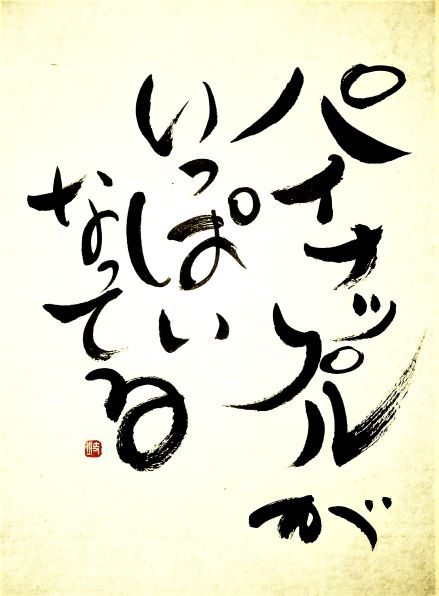 パイナップルが
いっぱい
なってる